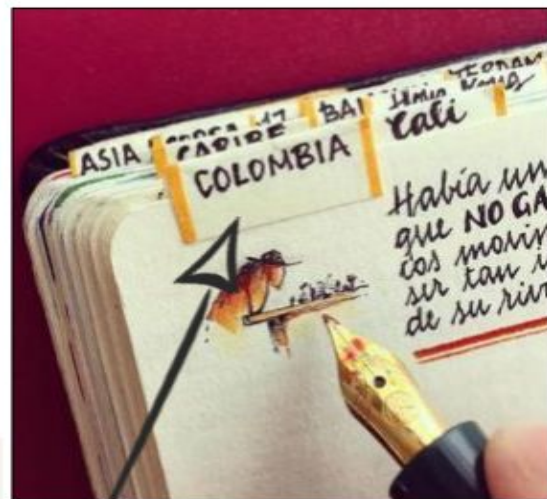 ASIA
CARIBE
BAI
Cali
COLOMBIA
Había un
que NO GA
cos movim
ser tan i
de su riv